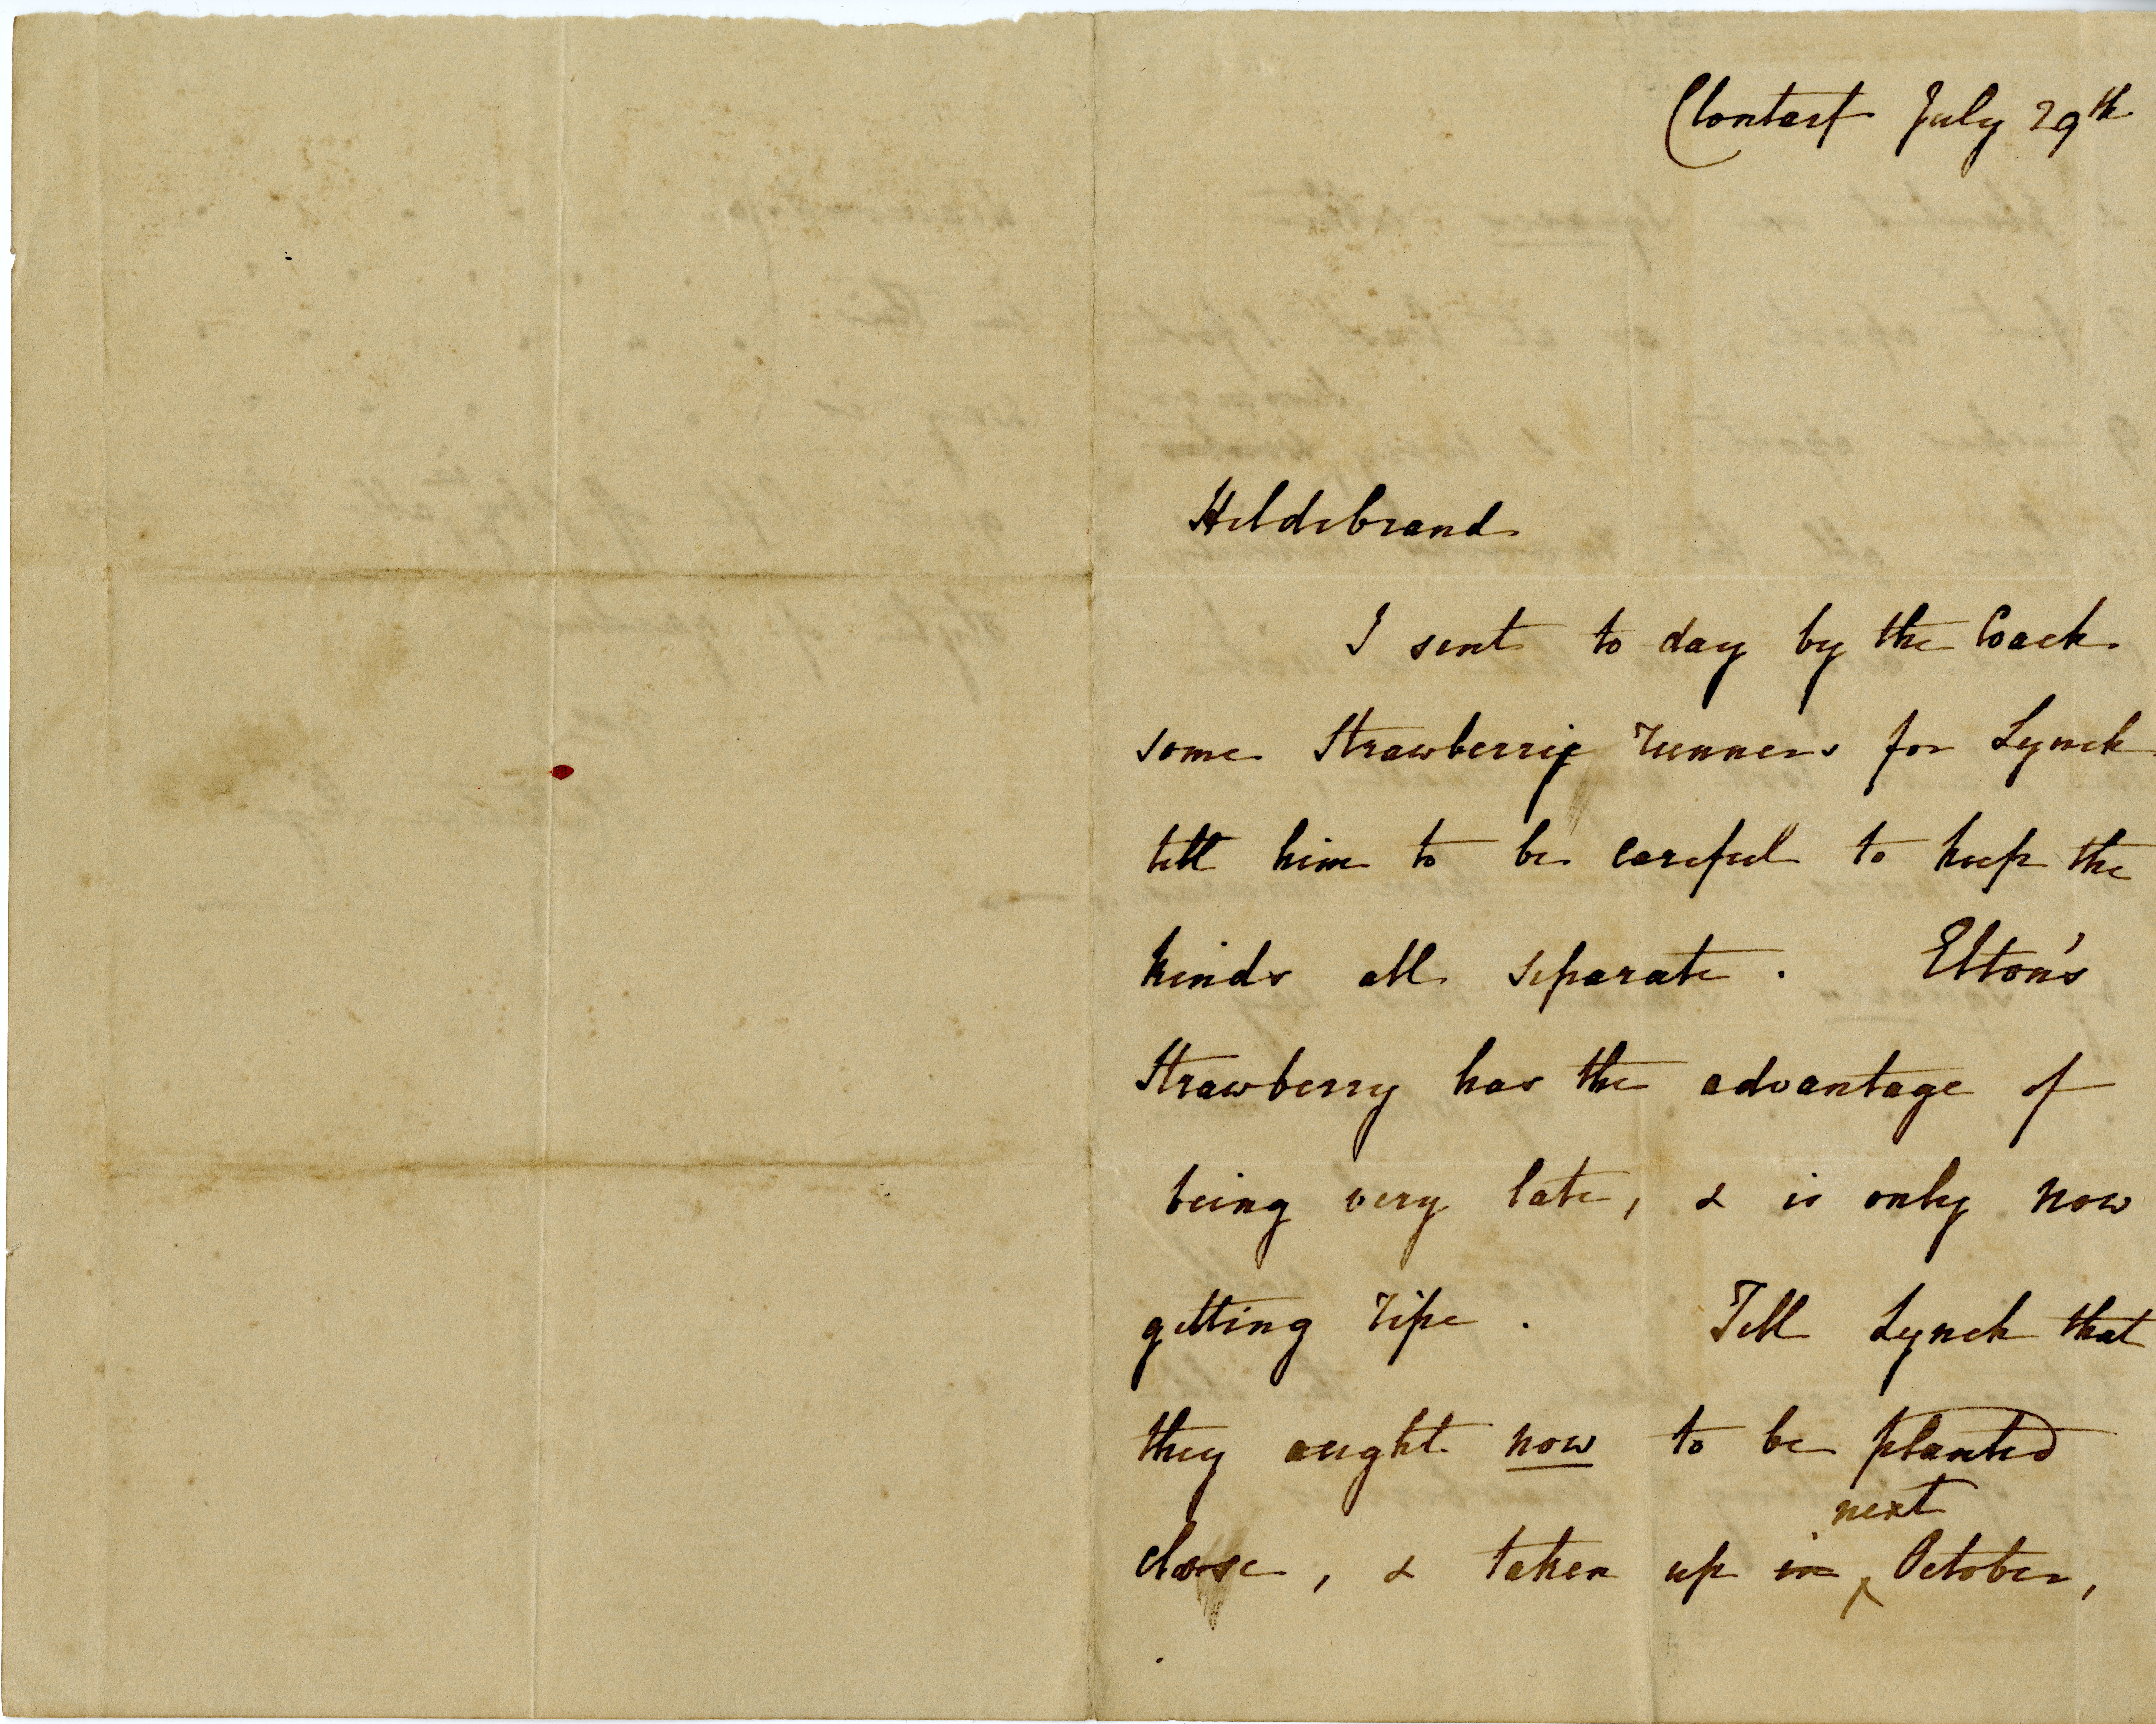 Clontarf July 29th
Hildebrand
I sent to day by the Coach
some Strawberrie runners for Lynch
tell him to be careful to keep the
kinds all separate. Elton's
Strawberry has the advantage of
being very late, & is only now
getting ripe. Tell Lynch that
they aught now to be planted
next
close, & taken up in October,